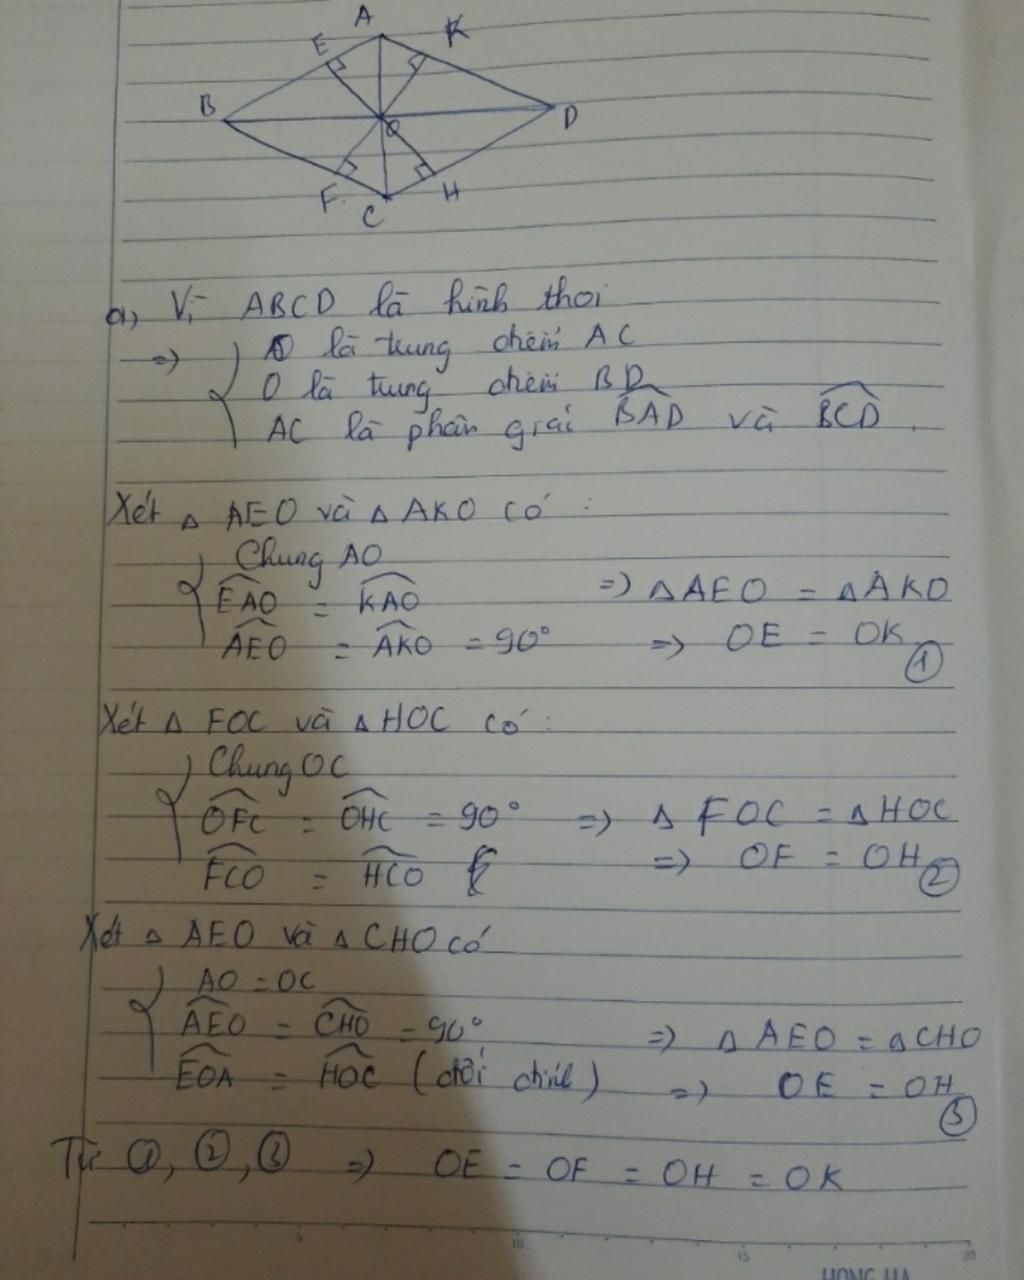 A
E
K
B
O
D
F
C
H
a, Vì ABCD là hình thoi
=> O là trung điểm AC
O là trung điểm BD
AC là phân giác BAD và BCD.
Xét △ AEO và △ AKO có :
Chung AO
EAO = KAO => △ AEO = △ AKO
AEO = AKO = 90° => OE = OK ①
Xét △ FOC và △ HOC có :
Chung OC
OFC = OHC = 90° => △ FOC = △ HOC
FCO = HCO => OF = OH ②
Xét △ AEO và △ CHO có
AO = OC
AEO = CHO = 90° => △ AEO = △ CHO
EOA = HOC (đối đỉnh) => OE = OH ③
Từ ①, ②, ③ => OE = OF = OH = OK
5 10 15 20
HONG HA